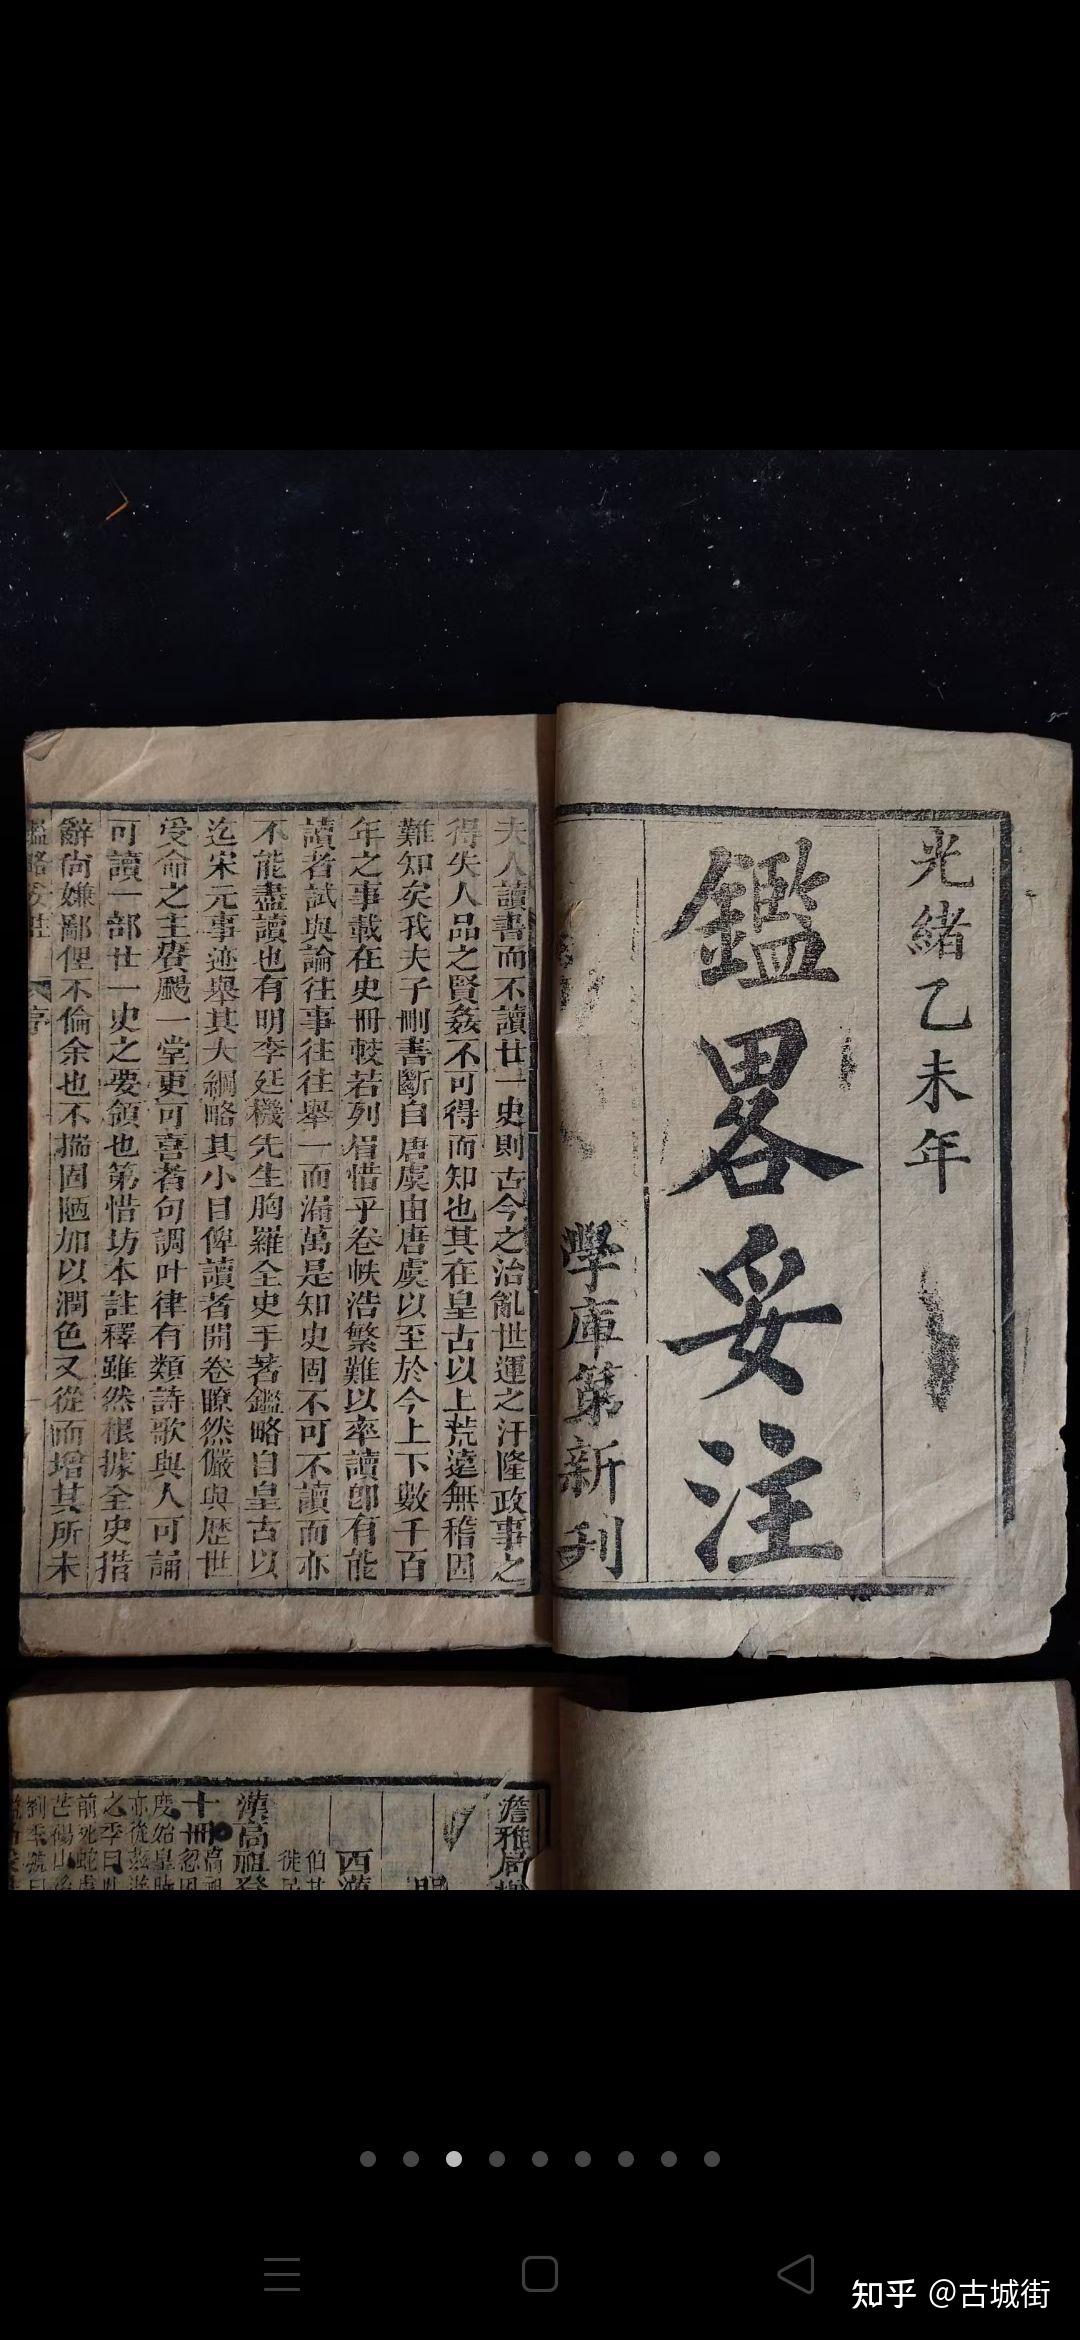 光緒乙未年
鑑畧妥注
學庫第新刋
夫人讀書而不讀廿一史則古今之治亂世運之汙隆政事之
得失人品之賢姦不可得而知也其在皇古以上荒遠無稽因
難知矣我夫子刪書斷自唐虞由唐虞以至於今上下數千百
年之事載在史冊較若列眉惜乎卷帙浩繁難以率讀卽有能
讀者試與論往事往往舉一而漏萬是知史固不可不讀而亦
不能盡讀也有明李廷機先生胸羅全史手著鑑略自皇古以
迄宋元事迹舉其大綱略其小目俾讀者開卷瞭然儼與歴世
受命之主賡颺一堂更可喜者句調叶律有類詩歌與人可誦
可讀一部廿一史之要領也第惜坊本註釋雖然根據全史措
辭尚嫌鄙俚不倫余也不揣固陋加以潤色又從而增其所未
鑑略妥註 序
西漢
漢高祖
知乎 @古城街